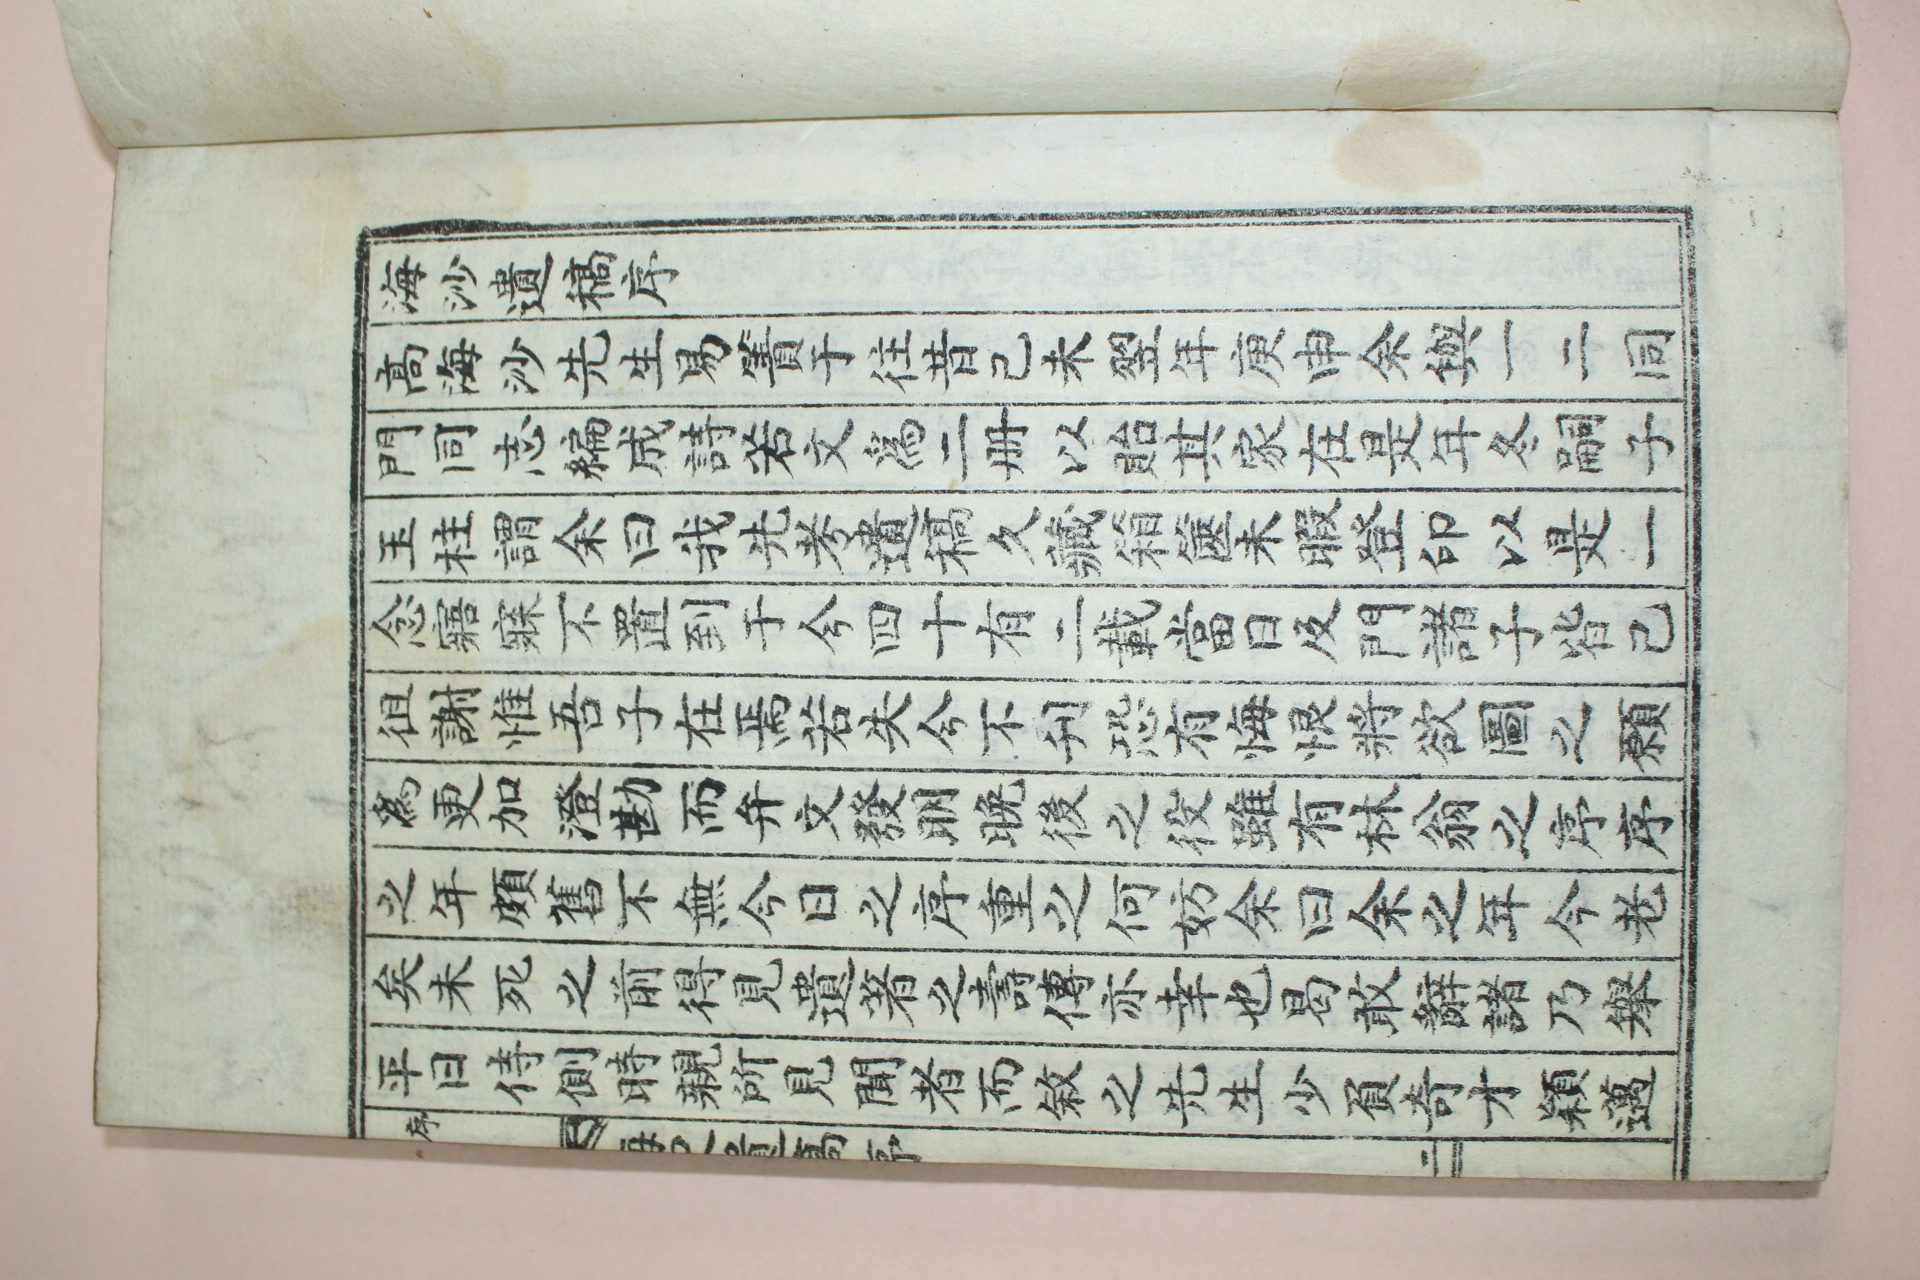 海沙遺稿序
高海沙先生易簀于往昔己未翌年庚申余與一二同
門同志編成詩若文爲二册以貽其家在是年冬嗣子
玉柱謂余曰我先考遺稿久藏箱篋未暇登印以是一
念寤寐不置到于今四十有二載當日及門諸子皆已
徂謝惟吾子在焉若失今不刊恐有悔恨將欲圖之願
爲更加澄勘而弁文發明晩後之役雖有林翁之序序
之年頗舊不無今日之序重之何妨余曰余之年今耄
矣未死之前得見遺著之壽傳亦幸也曷敢辭諸乃擧
平日侍側時親所見聞者而敘之先生少負奇才穎邁
序
海沙遺稿序
二